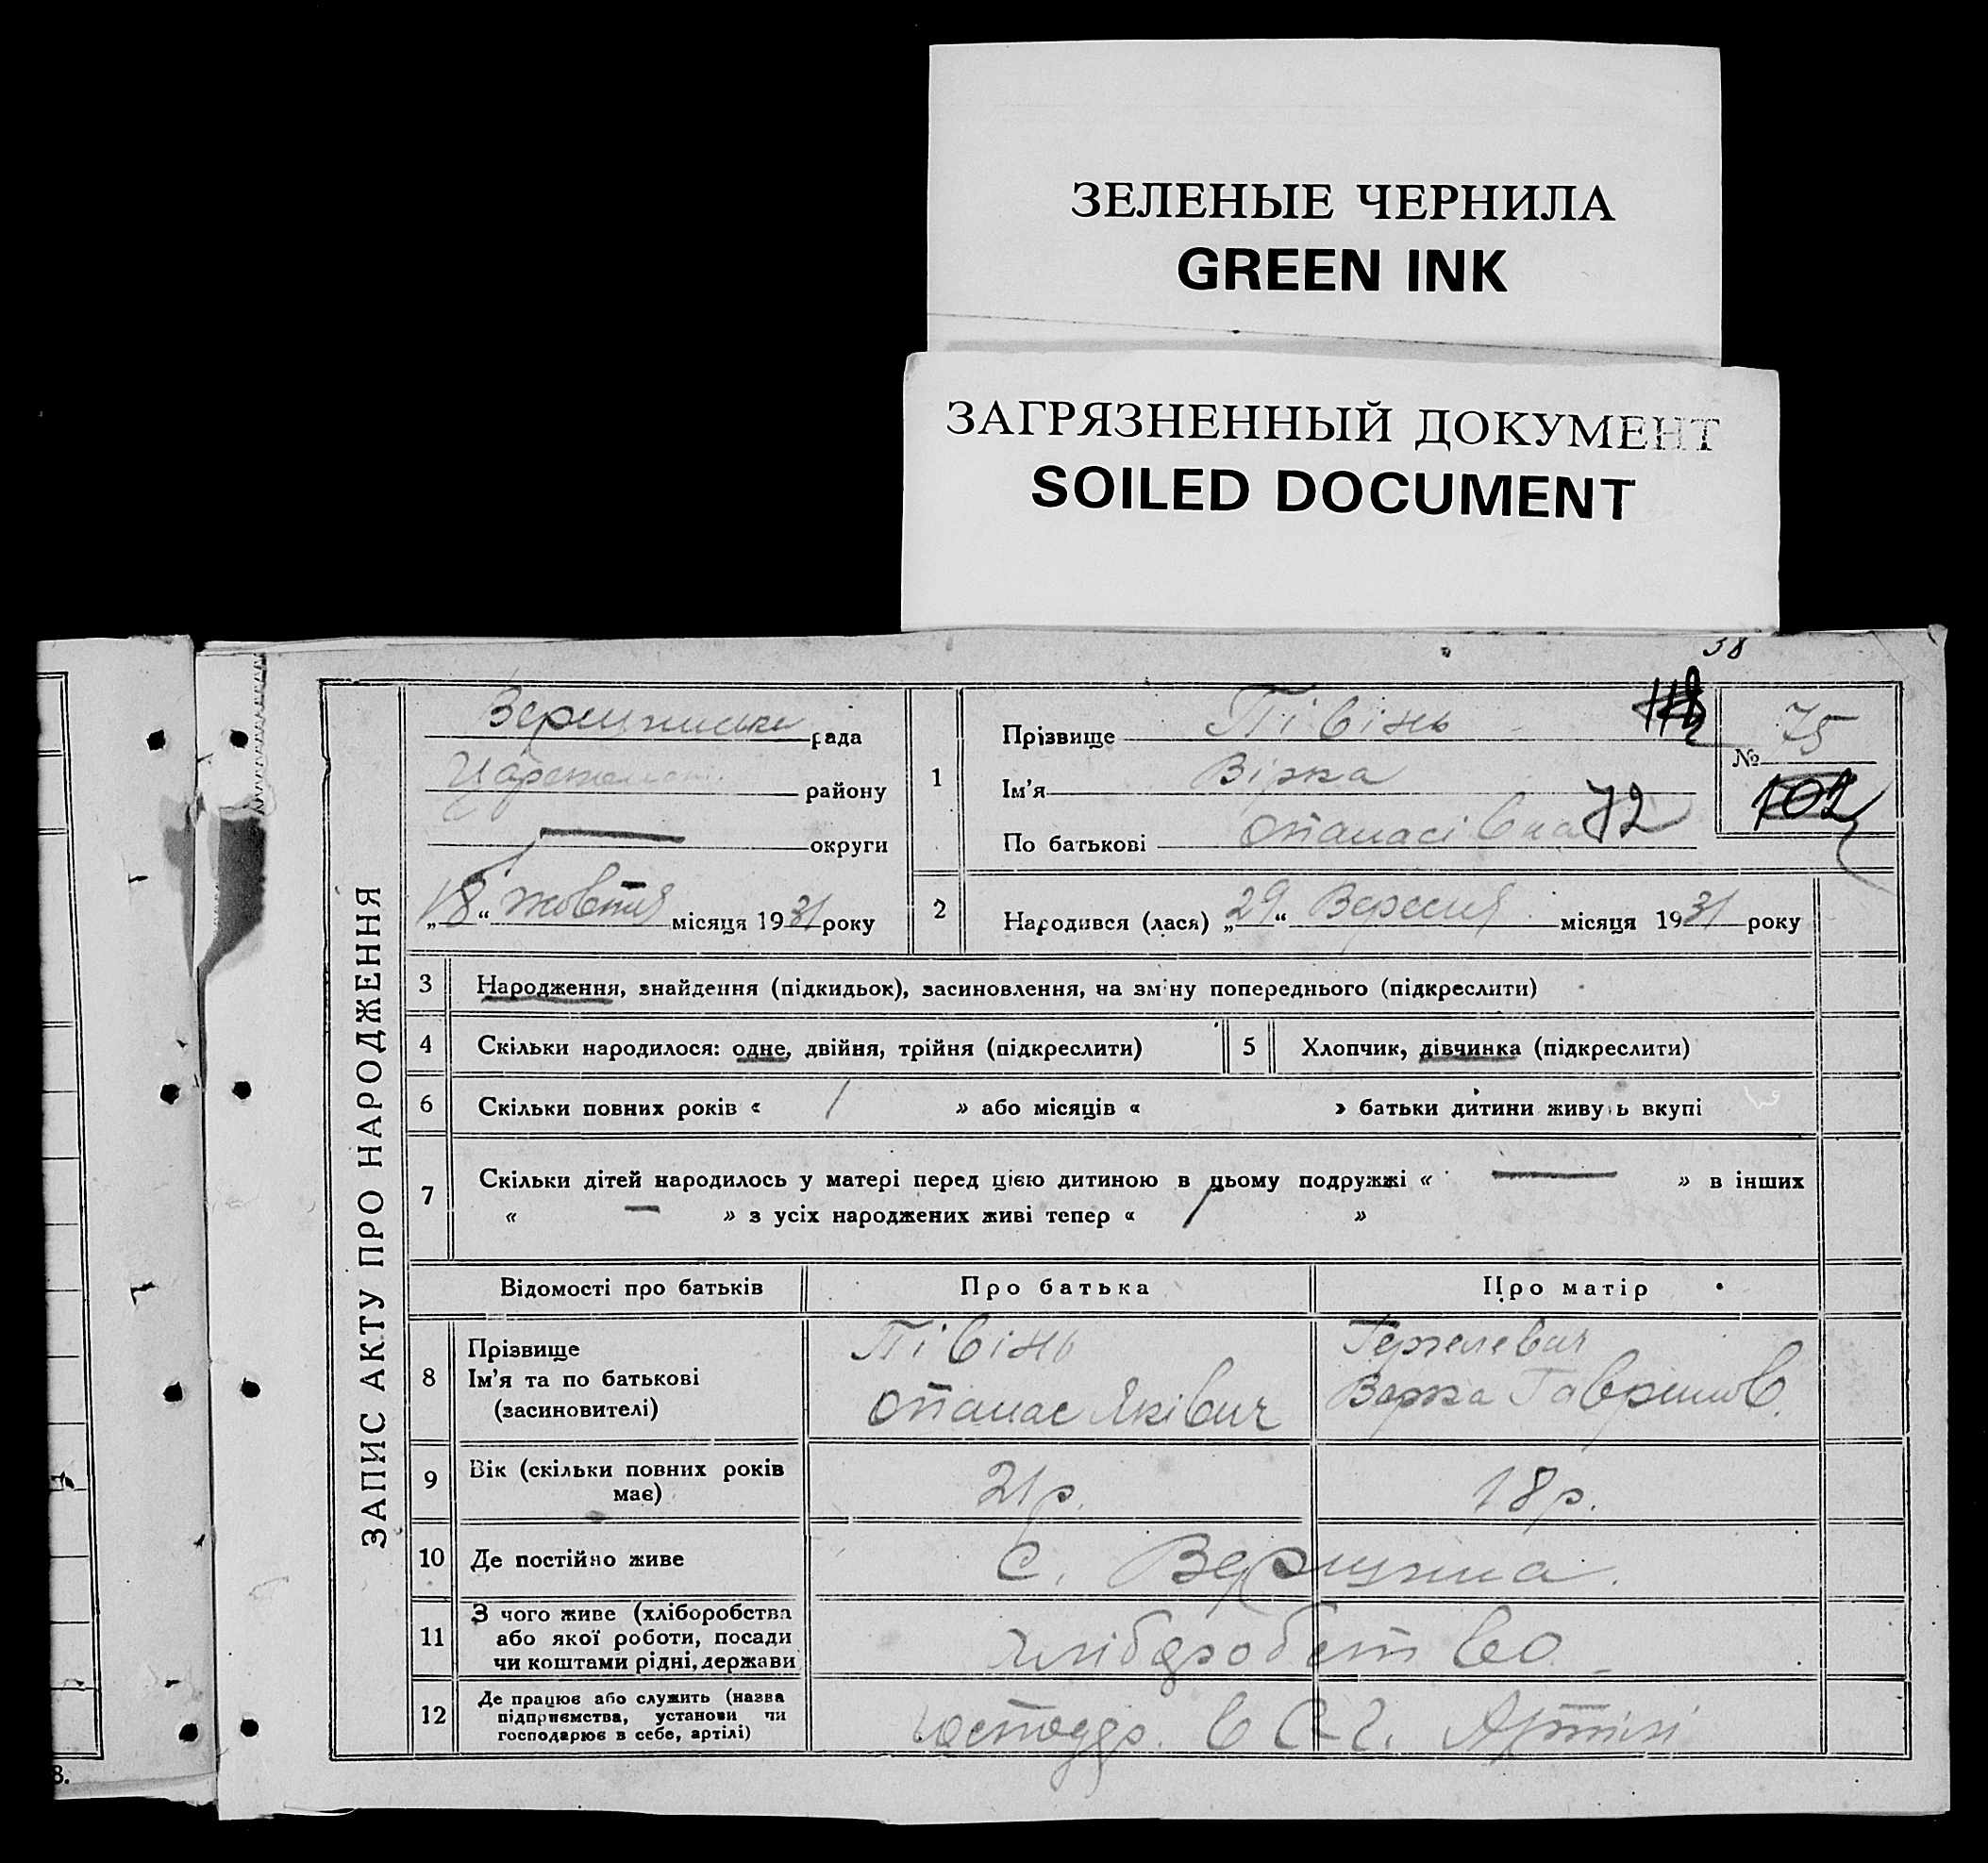 ЗЕЛЕНЫЕ ЧЕРНИЛА
GREEN INK
ЗАГРЯЗНЕННЫЙ ДОКУМЕНТ
SOILED DOCUMENT
38
ЗАПИС АКТУ ПРО НАРОДЖЕННЯ
рада
району
округи
„18“ жовтня місяця 1931 року
1
Прізвище Півінь
Ім'я Вірка
По батькові Опанасівна 72
№ 75
102
2 Народився (лася) „29“ Вересня місяця 1931 року
3 Народження, знайдення (підкидьок), засиновлення, на зміну попереднього (підкреслити)
4 Скільки народилося: одне, двійня, трійня (підкреслити) 5 Хлопчик, дівчинка (підкреслити)
6 Скільки повних років « / » або місяців « » батьки дитини живуть вкупі
7 Скільки дітей народилось у матері перед цією дитиною в цьому подружжі « — » в інших
« — » з усіх народжених живі тепер « / »
Відомості про батьків Про батька Про матір
8 Прізвище
Ім'я та по батькові
(засиновителі)
Півінь
Опанас Яківич
Варка Гаврилов.
9 Вік (скільки повних років має) 21 р. 18 р.
10 Де постійно живе С.
11 З чого живе (хліборобства або якої роботи, посади чи коштами рідні, держави хліборобство
12 Де працює або служить (назва підприємства, установи чи господарює в себе, артілі) господар. в С-г. Артілі
8.